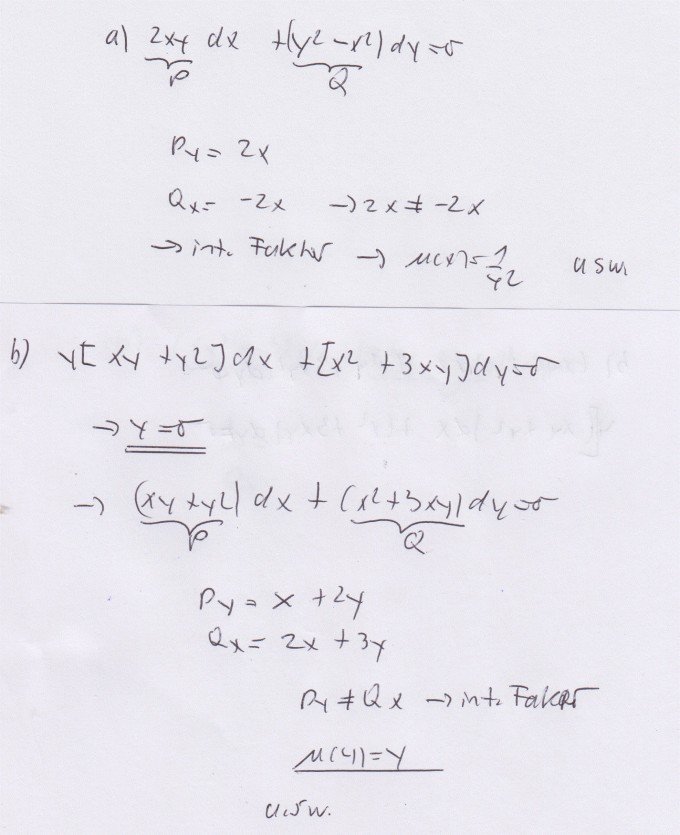 a) 2xy dx + (y² - x²) dy = 0
P Q
Py = 2x
Qx = -2x → 2x ≠ -2x
→ int. Faktor → μ(x) = 1/y² usw
b) y[xy + y²] dx + [x² + 3xy] dy = 0
→ y = 0
→ (xy + y²) dx + (x² + 3xy) dy = 0
P Q
Py = x + 2y
Qx = 2x + 3y
Py ≠ Qx → int. Faktor
μ(y) = y
usw.